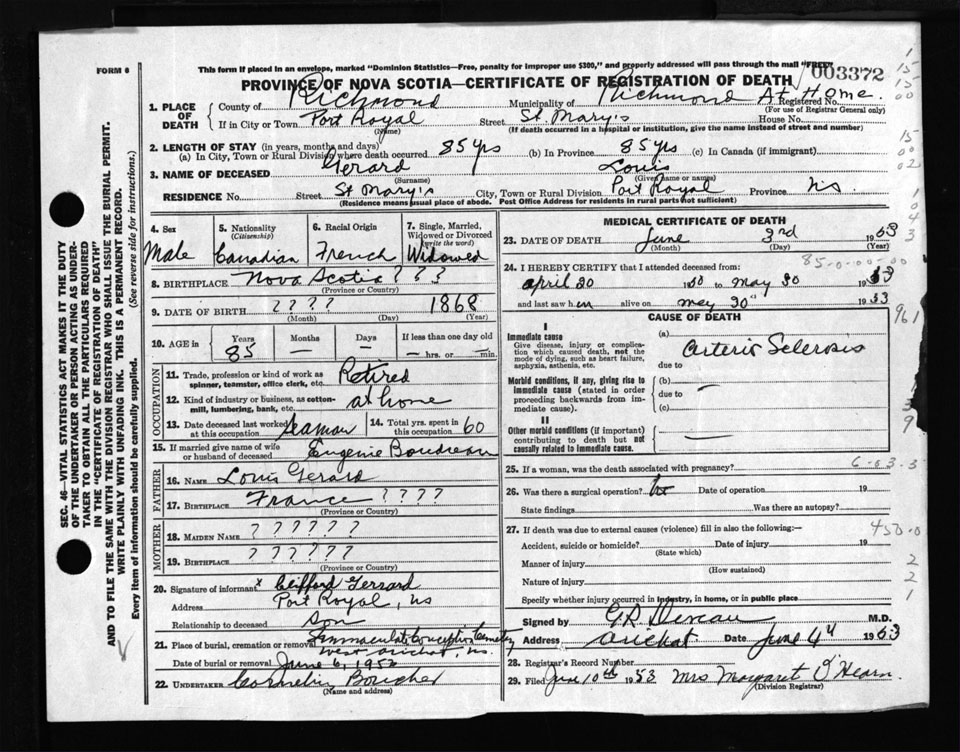 FORM 6
This form if placed in an envelope, marked "Dominion Statistics—Free, penalty for improper use $300," and properly addressed will pass through the mail "FREE"
003372
PROVINCE OF NOVA SCOTIA—CERTIFICATE OF REGISTRATION OF DEATH
1. PLACE OF DEATH
County of Richmond Municipality of Richmond At Home. Registered No.
(For use of Registrar General only)
If in City or Town Port Royal Street St. Mary's House No.
(Name) (If death occurred in a hospital or institution, give the name instead of street and number)
2. LENGTH OF STAY (in years, months and days)
(a) In City, Town or Rural Division where death occurred 85 yrs (b) In Province 85 yrs (c) In Canada (if immigrant)
3. NAME OF DECEASED Gerard Louis
(Surname) (Given name or names)
RESIDENCE No. Street St Mary's City, Town or Rural Division Port Royal Province NS
(Residence means usual place of abode. Post Office Address for residents in rural parts not sufficient)
4. Sex Male
5. Nationality (Citizenship) Canadian
6. Racial Origin French
7. Single, Married, Widowed or Divorced (write the word) Widowed
8. BIRTHPLACE Nova Scotia ? ? ?
(Province or Country)
9. DATE OF BIRTH ? ? ? ? 1868
(Month) (Day) (Year)
10. AGE in Years 85 Months — Days — If less than one day old — hrs. or — min.
OCCUPATION
11. Trade, profession or kind of work as spinner, teamster, office clerk, etc. Retired
12. Kind of industry or business, as cotton-mill, lumbering, bank, etc. at home
13. Date deceased last worked at this occupation seaman 14. Total yrs. spent in this occupation 60
15. If married give name of wife or husband of deceased Eugenie Boudreau
FATHER
16. NAME Louis Gerard
17. BIRTHPLACE France ? ? ? ?
(Province or Country)
MOTHER
18. MAIDEN NAME ? ? ? ? ? ?
19. BIRTHPLACE ? ? ? ? ?
(Province or Country)
20. Signature of informant x Clifford Gerrard
Address Port Royal, NS
Relationship to deceased Son
21. Place of burial, cremation or removal Immaculate Conception Cemetery
West Arichat, NS.
Date of burial or removal June 6, 1953
22. UNDERTAKER Boucher
(Name and address)
MEDICAL CERTIFICATE OF DEATH
23. DATE OF DEATH June 3rd 1953
(Month) (Day) (Year)
85-0-00-00
24. I HEREBY CERTIFY that I attended deceased from:
april 20 1950 to may 30 1953
and last saw him alive on may 30th 1953
CAUSE OF DEATH
I
Immediate cause
Give disease, injury or complication which caused death, not the mode of dying, such as heart failure, asphyxia, asthenia, etc.
(a) Arterio Sclerosis
due to
Morbid conditions, if any, giving rise to immediate cause (stated in order proceeding backwards from immediate cause).
(b) —
due to
(c)
II
Other morbid conditions (if important) contributing to death but not causally related to immediate cause.
—
25. If a woman, was the death associated with pregnancy? 6-03-3
26. Was there a surgical operation? No Date of operation 19
State findings Was there an autopsy?
27. If death was due to external causes (violence) fill in also the following:—
450-0
Accident, suicide or homicide? Date of injury 19
(State which)
Manner of injury
(How sustained)
Nature of injury
Specify whether injury occurred in industry, in home, or in public place
Signed by M.D.
Address Arichat Date June 4th 1953
28. Registrar's Record Number
29. Filed June 10th 1953 Mrs Margaret O'Hearn
(Division Registrar)
SEC. 46—VITAL STATISTICS ACT MAKES IT THE DUTY
OF THE UNDERTAKER OR PERSON ACTING AS UNDER-
TAKER TO OBTAIN ALL THE PARTICULARS REQUIRED
IN THE "CERTIFICATE OF REGISTRATION OF DEATH"
AND TO FILE THE SAME WITH THE DIVISION REGISTRAR WHO SHALL ISSUE THE BURIAL PERMIT.
WRITE PLAINLY WITH UNFADING INK. THIS IS A PERMANENT RECORD.
Every item of information should be carefully supplied. (See reverse side for instructions.)
1
15
15
00
15
00
02
1
0
4
3
961
3
9
2
2
1